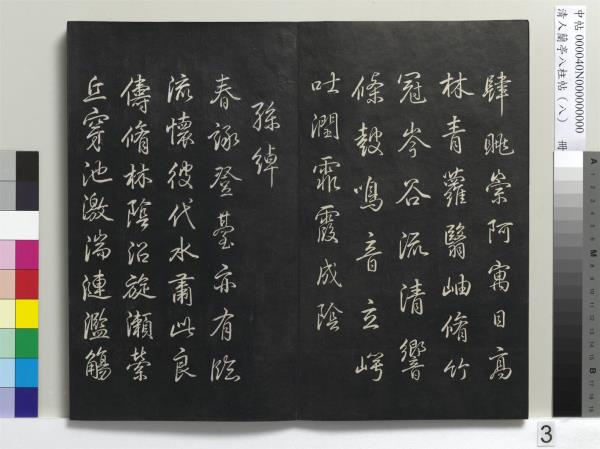 肆眺崇阿寓目高
林青蘿翳岫脩竹
冠岑谷流清響
條鼓鳴音玄崿
吐潤霏霧成陰
孫綽
春詠登臺亦有臨
流懷彼伐木肅此良
儔脩林陰沼旋瀨縈
丘穿池激湍連濫觴
中帖 000040N000000000
清人蘭亭八柱帖（八） 冊
3